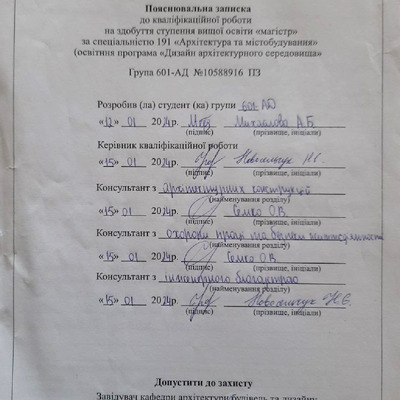 Пояснювальна записка
до кваліфікаційної роботи
на здобуття ступення вищої освіти «магістр»
за спеціальністю 191 «Архітектура та містобудування»
(освітня програма «Дизайн архітектурного середовища»
Група 601-АД №10588916 ПЗ
Розробив (ла) студент (ка) групи 601-АД
«12» 01 2024р. Михайлова А.Б.
(підпис) (прізвище, ініціали)
Керівник кваліфікаційної роботи
«15» 01 2024р. Новосельчук Н.Є.
(підпис) (прізвище, ініціали)
Консультант з архітектурних конструкцій
(найменування розділу)
«15» 01 2024р. Семко О.В.
(підпис) (прізвище, ініціали)
Консультант з охорони праці та безпеки життєдіяльності
(найменування розділу)
«15» 01 2024р. Семко О.В.
(підпис) (прізвище, ініціали)
Консультант з інженерного благоустрою
(найменування розділу)
«15» 01 2024р. Новосельчук Н.Є.
(підпис) (прізвище, ініціали)
Допустити до захисту
Завідувач кафедри архітектури будівель та дизайну